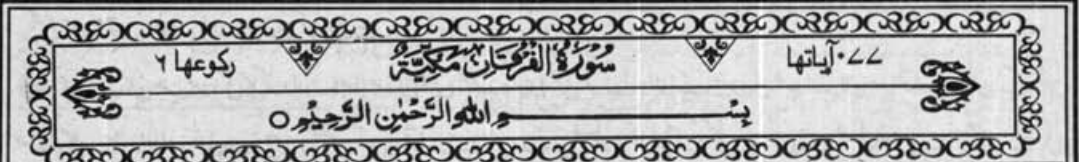 ٧٧ آیاتها سُوْرَةُ الْفُرْقَانِ مَكِّيَّةٌ رکوعها ٦
بِسْمِ اللّٰهِ الرَّحْمٰنِ الرَّحِيْمِ ○